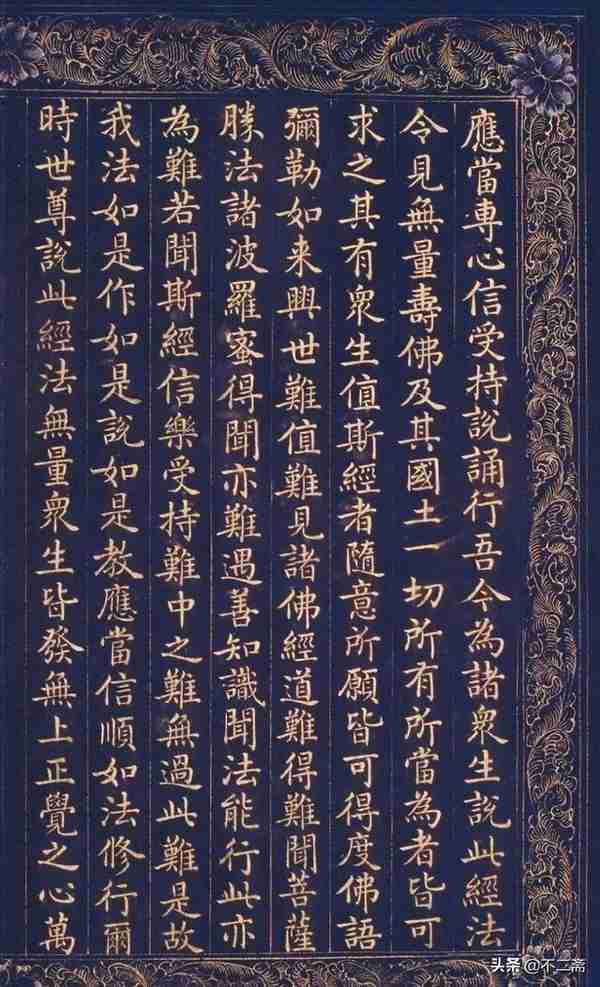 應當専心信受持說誦行吾今為諸衆生說此經法
令見無量壽佛及其國土一切所有所當為者皆可
求之其有衆生值斯經者隨意所願皆可得度佛語
彌勒如来興世難值難見諸佛經道難得難聞菩薩
勝法諸波羅蜜得聞亦難遇善知識聞法能行此亦
為難若聞斯經信樂受持難中之難無過此難是故
我法如是作如是說如是教應當信順如法修行爾
時世尊說此經法無量衆生皆發無上正覺之心萬
头条@不二斋